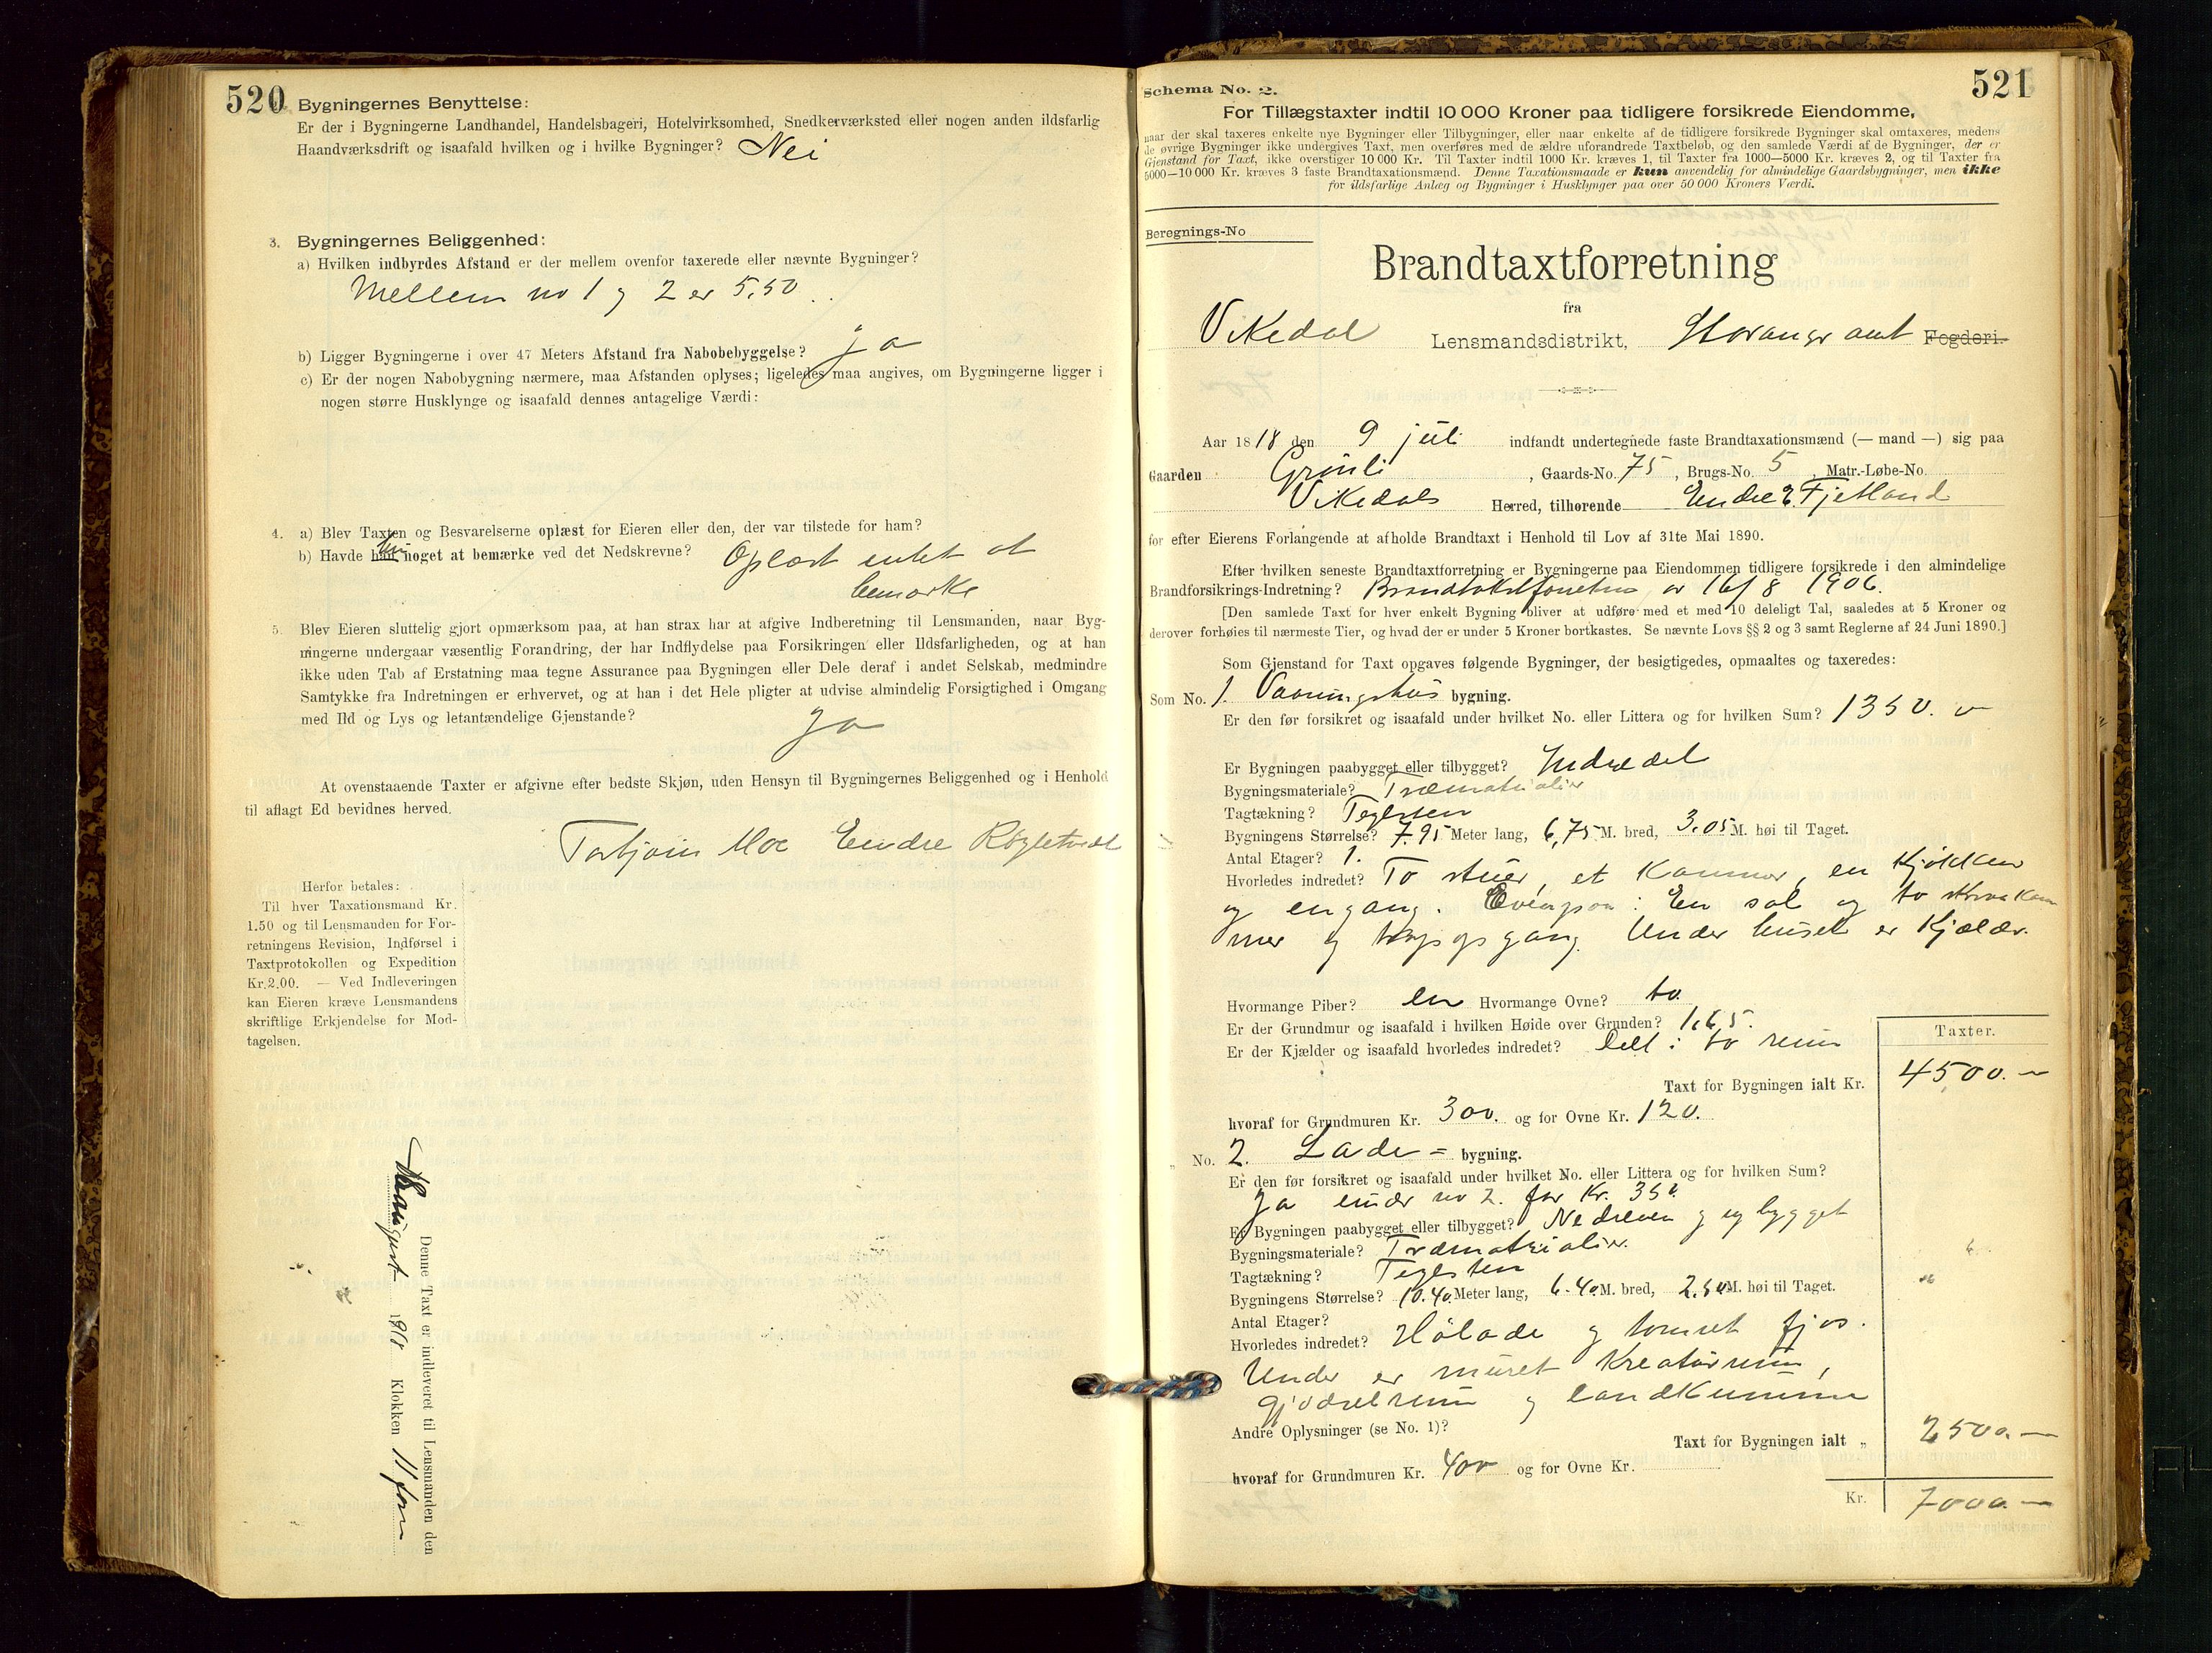 520
Bygningernes Benyttelse:
Er der i Bygningerne Landhandel, Handelsbageri, Hotelvirksomhed, Snedkerværksted eller nogen anden ildsfarlig
Haandværksdrift og isaafald hvilken og i hvilke Bygninger? Nei
3. Bygningernes Beliggenhed:
a) Hvilken indbyrdes Afstand er der mellem ovenfor taxerede eller nævnte Bygninger?
Mellem no 1 og 2 er 5,50.
b) Ligger Bygningerne i over 47 Meters Afstand fra Nabobebyggelse? ja
c) Er der nogen Nabobygning nærmere, maa Afstanden oplyses; ligeledes maa angives, om Bygningerne ligger i
nogen større Husklynge og isaafald dennes antagelige Værdi:
4. a) Blev Taxten og Besvarelserne oplæst for Eieren eller den, der var tilstede for ham?
b) Havde han noget at bemærke ved det Nedskrevne? Oplæst intet at
bemærke
5. Blev Eieren sluttelig gjort opmærksom paa, at han strax har at afgive Indberetning til Lensmanden, naar Byg-
ningerne undergaar væsentlig Forandring, der har Indflydelse paa Forsikringen eller Ildsfarligheden, og at han
ikke uden Tab af Erstatning maa tegne Assurance paa Bygningen eller Dele deraf i andet Selskab, medmindre
Samtykke fra Indretningen er erhvervet, og at han i det Hele pligter at udvise almindelig Forsigtighed i Omgang
med Ild og Lys og letantændelige Gjenstande? Ja
At ovenstaaende Taxter er afgivne efter bedste Skjøn, uden Hensyn til Bygningernes Beliggenhed og i Henhold
til aflagt Ed bevidnes herved.
Torbjørn Moe Endre
Herfor betales:
Til hver Taxationsmand Kr.
1.50 og til Lensmanden for For-
retningens Revision, Indførsel i
Taxtprotokollen og Expedition
Kr.2.00. — Ved Indleveringen
kan Eieren kræve Lensmandens
skriftlige Erkjendelse for Mod-
tagelsen.
Denne Taxt er indleveret til Lensmanden den
august 1918 Klokken 11 form
521
Schema No. 2.
For Tillægstaxter indtil 10 000 Kroner paa tidligere forsikrede Eiendomme,
naar der skal taxeres enkelte nye Bygninger eller Tilbygninger, eller naar enkelte af de tidligere forsikrede Bygninger skal omtaxeres, medens
de øvrige Bygninger ikke undergives Taxt, men overføres med de ældre uforandrede Taxtbeløb, og den samlede Værdi af de Bygninger, der er
Gjenstand for Taxt, ikke overstiger 10 000 Kr. Til Taxter indtil 1000 Kr. kræves 1, til Taxter fra 1000—5000 Kr. kræves 2, og til Taxter fra
5000—10 000 Kr. kræves 3 faste Brandtaxationsmænd. Denne Taxationsmaade er kun anvendelig for almindelige Gaardsbygninger, men ikke
for ildsfarlige Anlæg og Bygninger i Husklynger paa over 50 000 Kroners Værdi.
Beregnings-No
Brandtaxtforretning
fra
Vikedal Lensmandsdistrikt, Stavanger amt Fogderi.
Aar 1818 den 9 juli indfandt undertegnede faste Brandtaxationsmænd (— mand —) sig paa
Gaarden Grønli, Gaards-No. 75, Brugs-No. 5, Matr.-Løbe-No.
Vikedals Herred, tilhørende Endre E. Fjetland
for efter Eierens Forlangende at afholde Brandtaxt i Henhold til Lov af 31te Mai 1890.
Efter hvilken seneste Brandtaxtforretning er Bygningerne paa Eiendommen tidligere forsikrede i den almindelige
Brandforsikrings-Indretning? av 16/8 1906.
[Den samlede Taxt for hver enkelt Bygning bliver at udføre med et med 10 deleligt Tal, saaledes at 5 Kroner og
derover forhøies til nærmeste Tier, og hvad der er under 5 Kroner bortkastes. Se nævnte Lovs §§ 2 og 3 samt Reglerne af 24 Juni 1890.]
Som Gjenstand for Taxt opgaves følgende Bygninger, der besigtigedes, opmaaltes og taxeredes:
Som No. 1. Vaaningshus bygning.
Er den før forsikret og isaafald under hvilket No. eller Littera og for hvilken Sum? 1350.
Er Bygningen paabygget eller tilbygget? Indredet
Bygningsmateriale? Træmaterialier
Tagtækning? Teglsten
Bygningens Størrelse? 7.95 Meter lang, 6,75 M. bred, 3.05 M. høi til Taget.
Antal Etager? 1.
Hvorledes indredet? To stuer, et kammer, en kjøkken
og en gang. Ovenpaa: En sal og to
mer og gang. Under huset er kjælder.
Hvormange Piber? en Hvormange Ovne? to.
Er der Grundmur og isaafald i hvilken Høide over Grunden? 1,65.
Er der Kjælder og isaafald hvorledes indredet? Delt i to rum
Taxter.
Taxt for Bygningen ialt Kr. 4500.—
hvoraf for Grundmuren Kr. 300. og for Ovne Kr. 120.
„ No. 2. Lade= bygning.
Er den før forsikret og isaafald under hvilket No. eller Littera og for hvilken Sum?
Ja under no 2. for Kr. 350
Er Bygningen paabygget eller tilbygget? Nedreven og ny bygget
Bygningsmateriale? Træmaterialier.
Tagtækning? Teglsten
Bygningens Størrelse? 10.40 Meter lang, 6.40 M. bred, 2.50 M. høi til Taget.
Antal Etager?
Hvorledes indredet? Hølade og tomret fjøs.
Under er muret kreaturrum,
gjødselrum og landkummer
Andre Oplysninger (se No. 1)?
Taxt for Bygningen ialt „ 2500.—
hvoraf for Grundmuren Kr. 400 og for Ovne Kr.
Kr. 7000.—